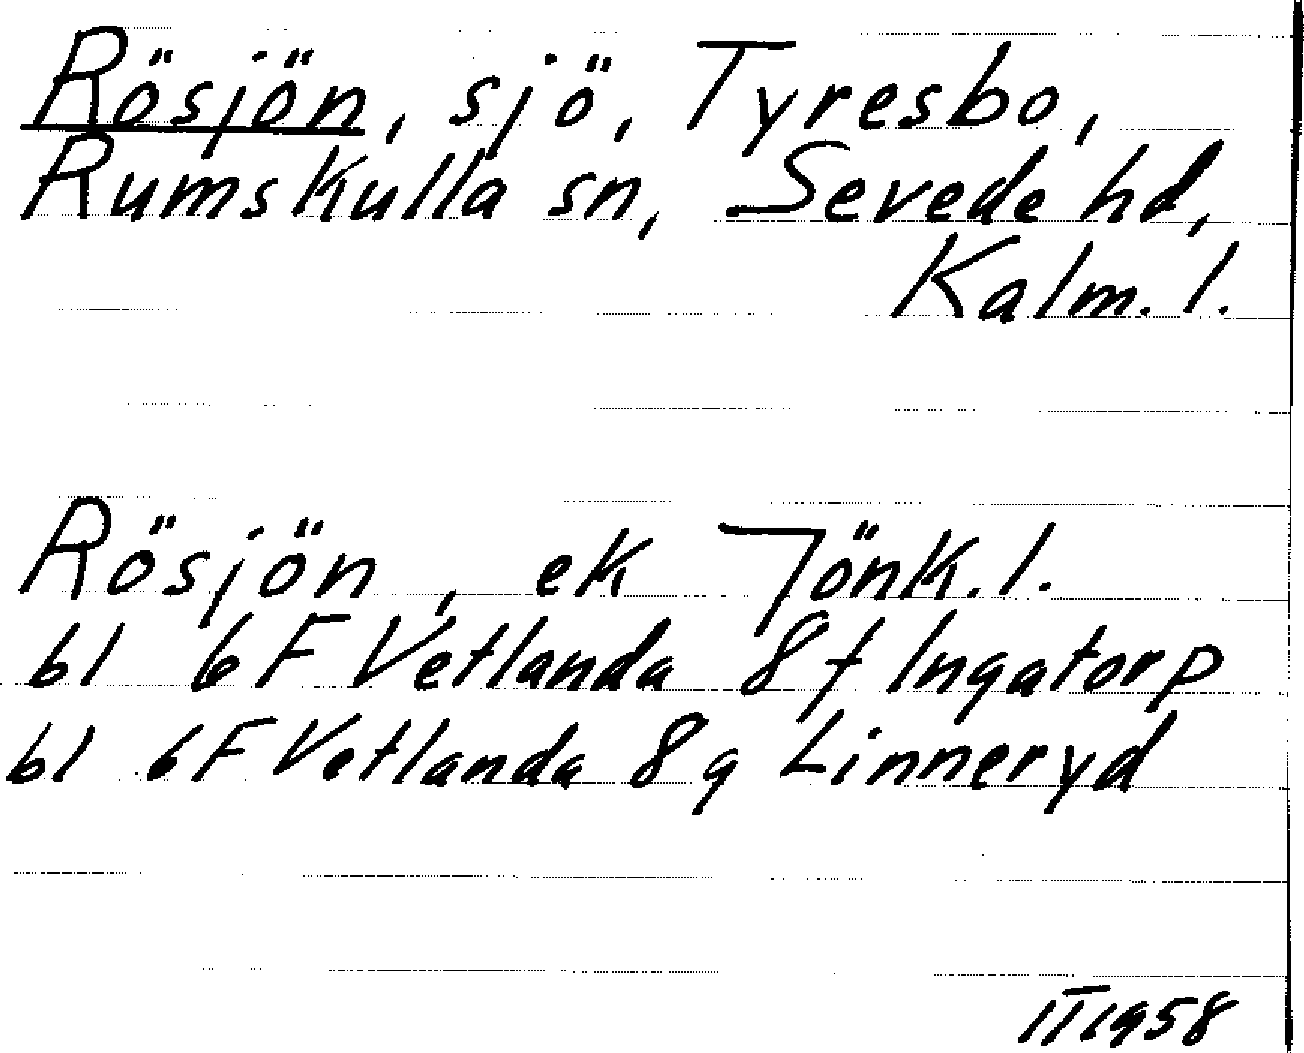 Rösjön, sjö, Tyresbo,
Rumskulla sn, Sevede hd,
Kalm. l.
Rösjön, ek Jönk. l.
bl 6F Vetlanda 8f Ingatorp
bl 6F Vetlanda 8g Linneryd